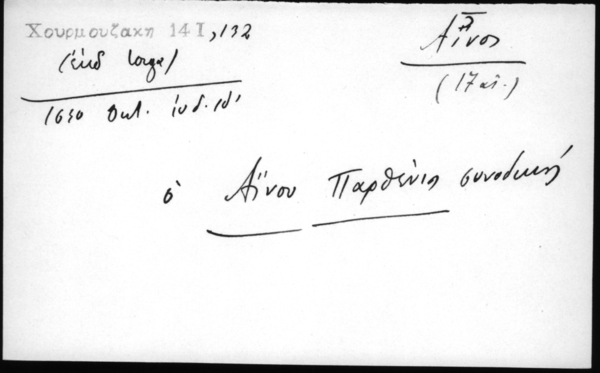 Χουρμουζακη 14 I, 132
(ἔκδ Iorga)
1630 Οκτ. ἰνδ. ιδ'
Αἶνος
(17 αἰ.)
ὁ Αἴνου Παρθένιος συνοδική